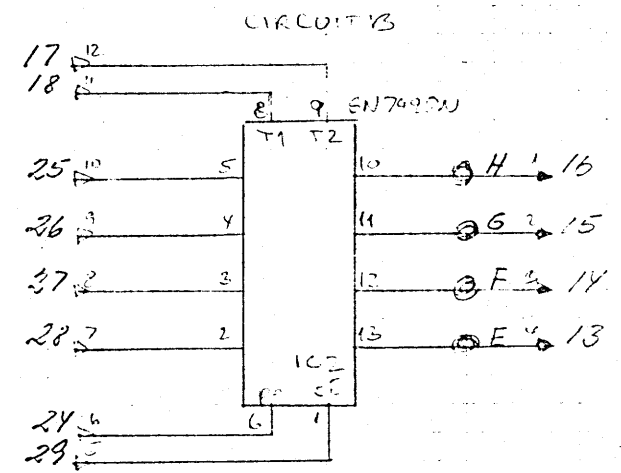 CIRCUIT B
17 12
18 11
8 9
T1 T2
25 10 5 10 H 1 16
26 9 4 11 G 2 15
27 8 3 12 F 3 14
28 7 2 13 E 4 13
IC2
24 6 6 1
29